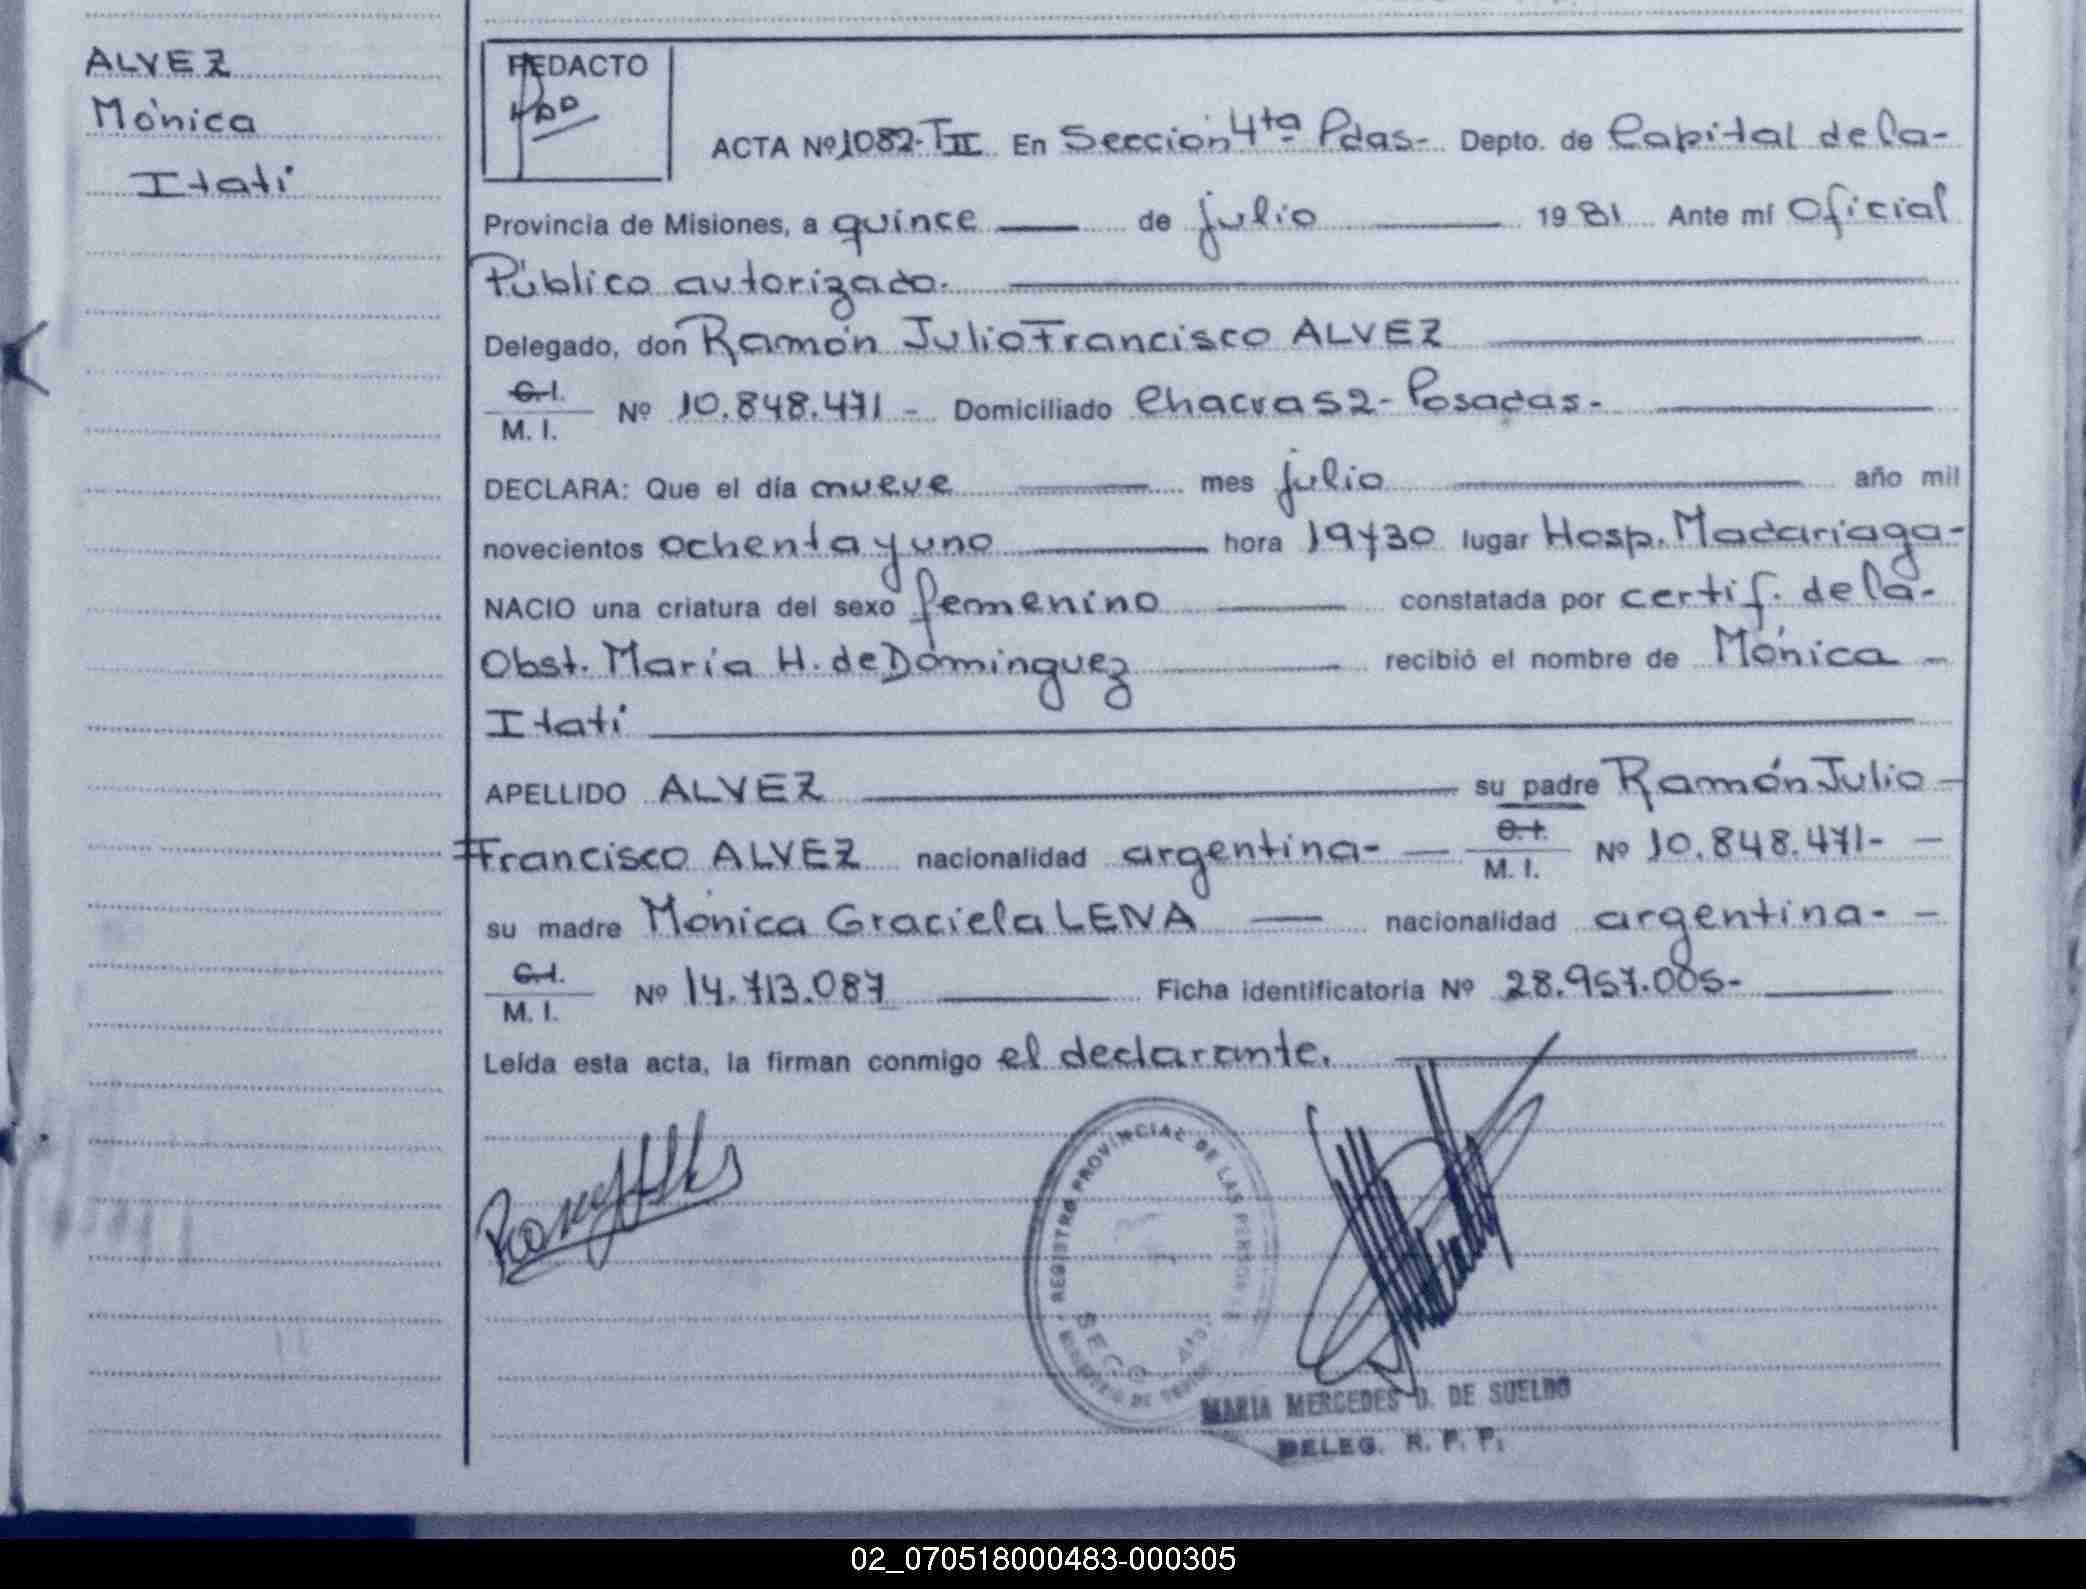 ALVEZ
Mónica
Itatí
REDACTO
ACTA Nº 1082-TII En Sección 4ta Pdas- Depto. de Capital de la-
Provincia de Misiones, a quince de julio 1981 Ante mí Oficial
Público autorizado.
Delegado, don Ramón Julio Francisco ALVEZ
C. I.
M. I. Nº 10.848.471- Domiciliado Chacra 52- Posadas-
DECLARA: Que el día nueve mes julio año mil
novecientos ochenta y uno hora 19y30 lugar Hosp. Madariaga-
NACIO una criatura del sexo femenino constatada por certif. de la-
Obst. María H. de Dominguez recibió el nombre de Mónica -
Itatí
APELLIDO ALVEZ su padre Ramón Julio -
Francisco ALVEZ nacionalidad argentina- C. I. M. I. Nº 10.848.471-
su madre Mónica Graciela LENA nacionalidad argentina-
C. I.
M. I. Nº 14.713.087 Ficha identificatoria Nº 28.957.005-
Leída esta acta, la firman conmigo el declarante.
REGISTRO PROVINCIAL DE LAS PERSONAS
MARIA MERCEDES D. DE SUELDO
DELEG. R. P. P.
02_070518000483-000305